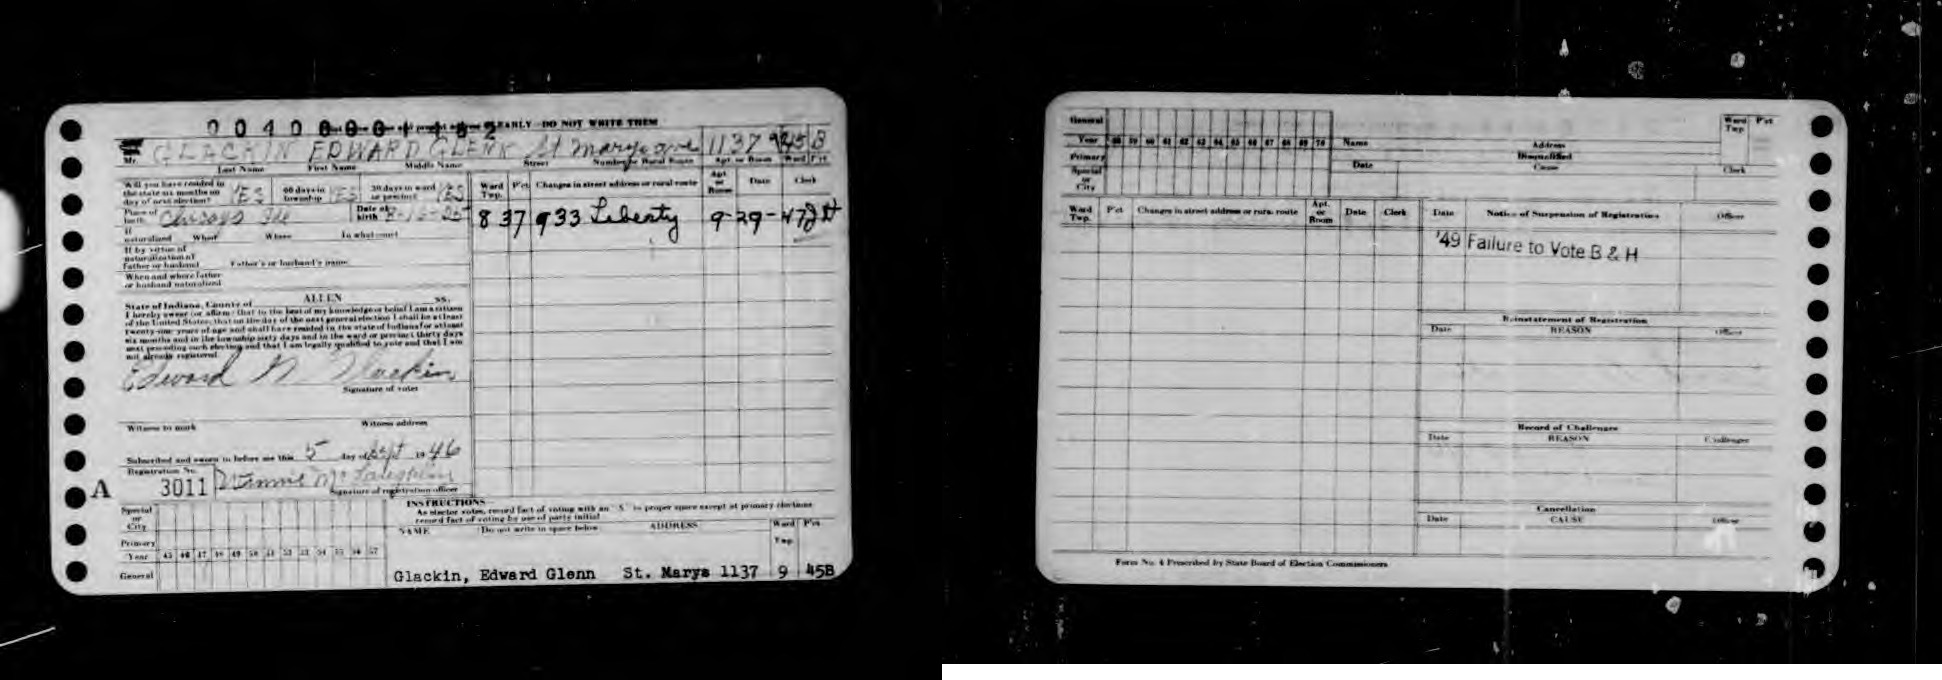 00400001482
EARLY—DO NOT WRITE THEM
Mr. GLACKIN EDWARD GLENN St Marys ave 1137 9 45 B
Last Name First Name Middle Name Street Number or Rural Route Apt. or Room Ward Pct.
Will you have resided in the state six months on day of next election? YES 60 days in township YES 30 days in ward or precinct YES
Place of birth Chicago Ill Date of birth
If naturalized When Where In what court
If by virtue of naturalization of father or husband Father's or husband's name
When and where father or husband naturalized
Ward Twp. P'ct Changes in street address or rural route Apt. or Room Date Clerk
8 37 933 Liberty 9-29-47
State of Indiana, County of ALLEN ss.
I hereby swear (or affirm) that to the best of my knowledge or belief I am a citizen
of the United States; that on the day of the next general election I shall be at least
twenty-one years of age and shall have resided in the state of Indiana for at least
six months and in the township sixty days and in the ward or precinct thirty days
next preceding such election and that I am legally qualified to vote and that I am
not already registered.
Edward G. Glackin
Signature of voter
Witness to mark Witness address
Subscribed and sworn to before me this 5 day of Sept 1946
Registration No.
A 3011
Signature of registration officer
Special or City
Primary
Year 45 46 47 48 49 50 51 52 53 54 55 56 57
General
INSTRUCTIONS
As elector votes, record fact of voting with an "X" in proper space except at primary elections
record fact of voting by use of party initial
NAME Do not write in space below ADDRESS Ward Twp. P'ct
Glackin, Edward Glenn St. Marys 1137 9 45B
General
Year 58 59 60 61 62 63 64 65 66 67 68 69 70
Primary
Special or City
Name Address Ward Twp. P'ct
Disqualified
Date Cause Clerk
Ward Twp. P'ct Changes in street address or rural route Apt. or Room Date Clerk
Date Notice of Suspension of Registration Officer
'49 Failure to Vote B & H
Reinstatement of Registration
Date REASON Officer
Record of Challenges
Date REASON Challenger
Cancellation
Date CAUSE Officer
Form No. 4 Prescribed by State Board of Election Commissioners